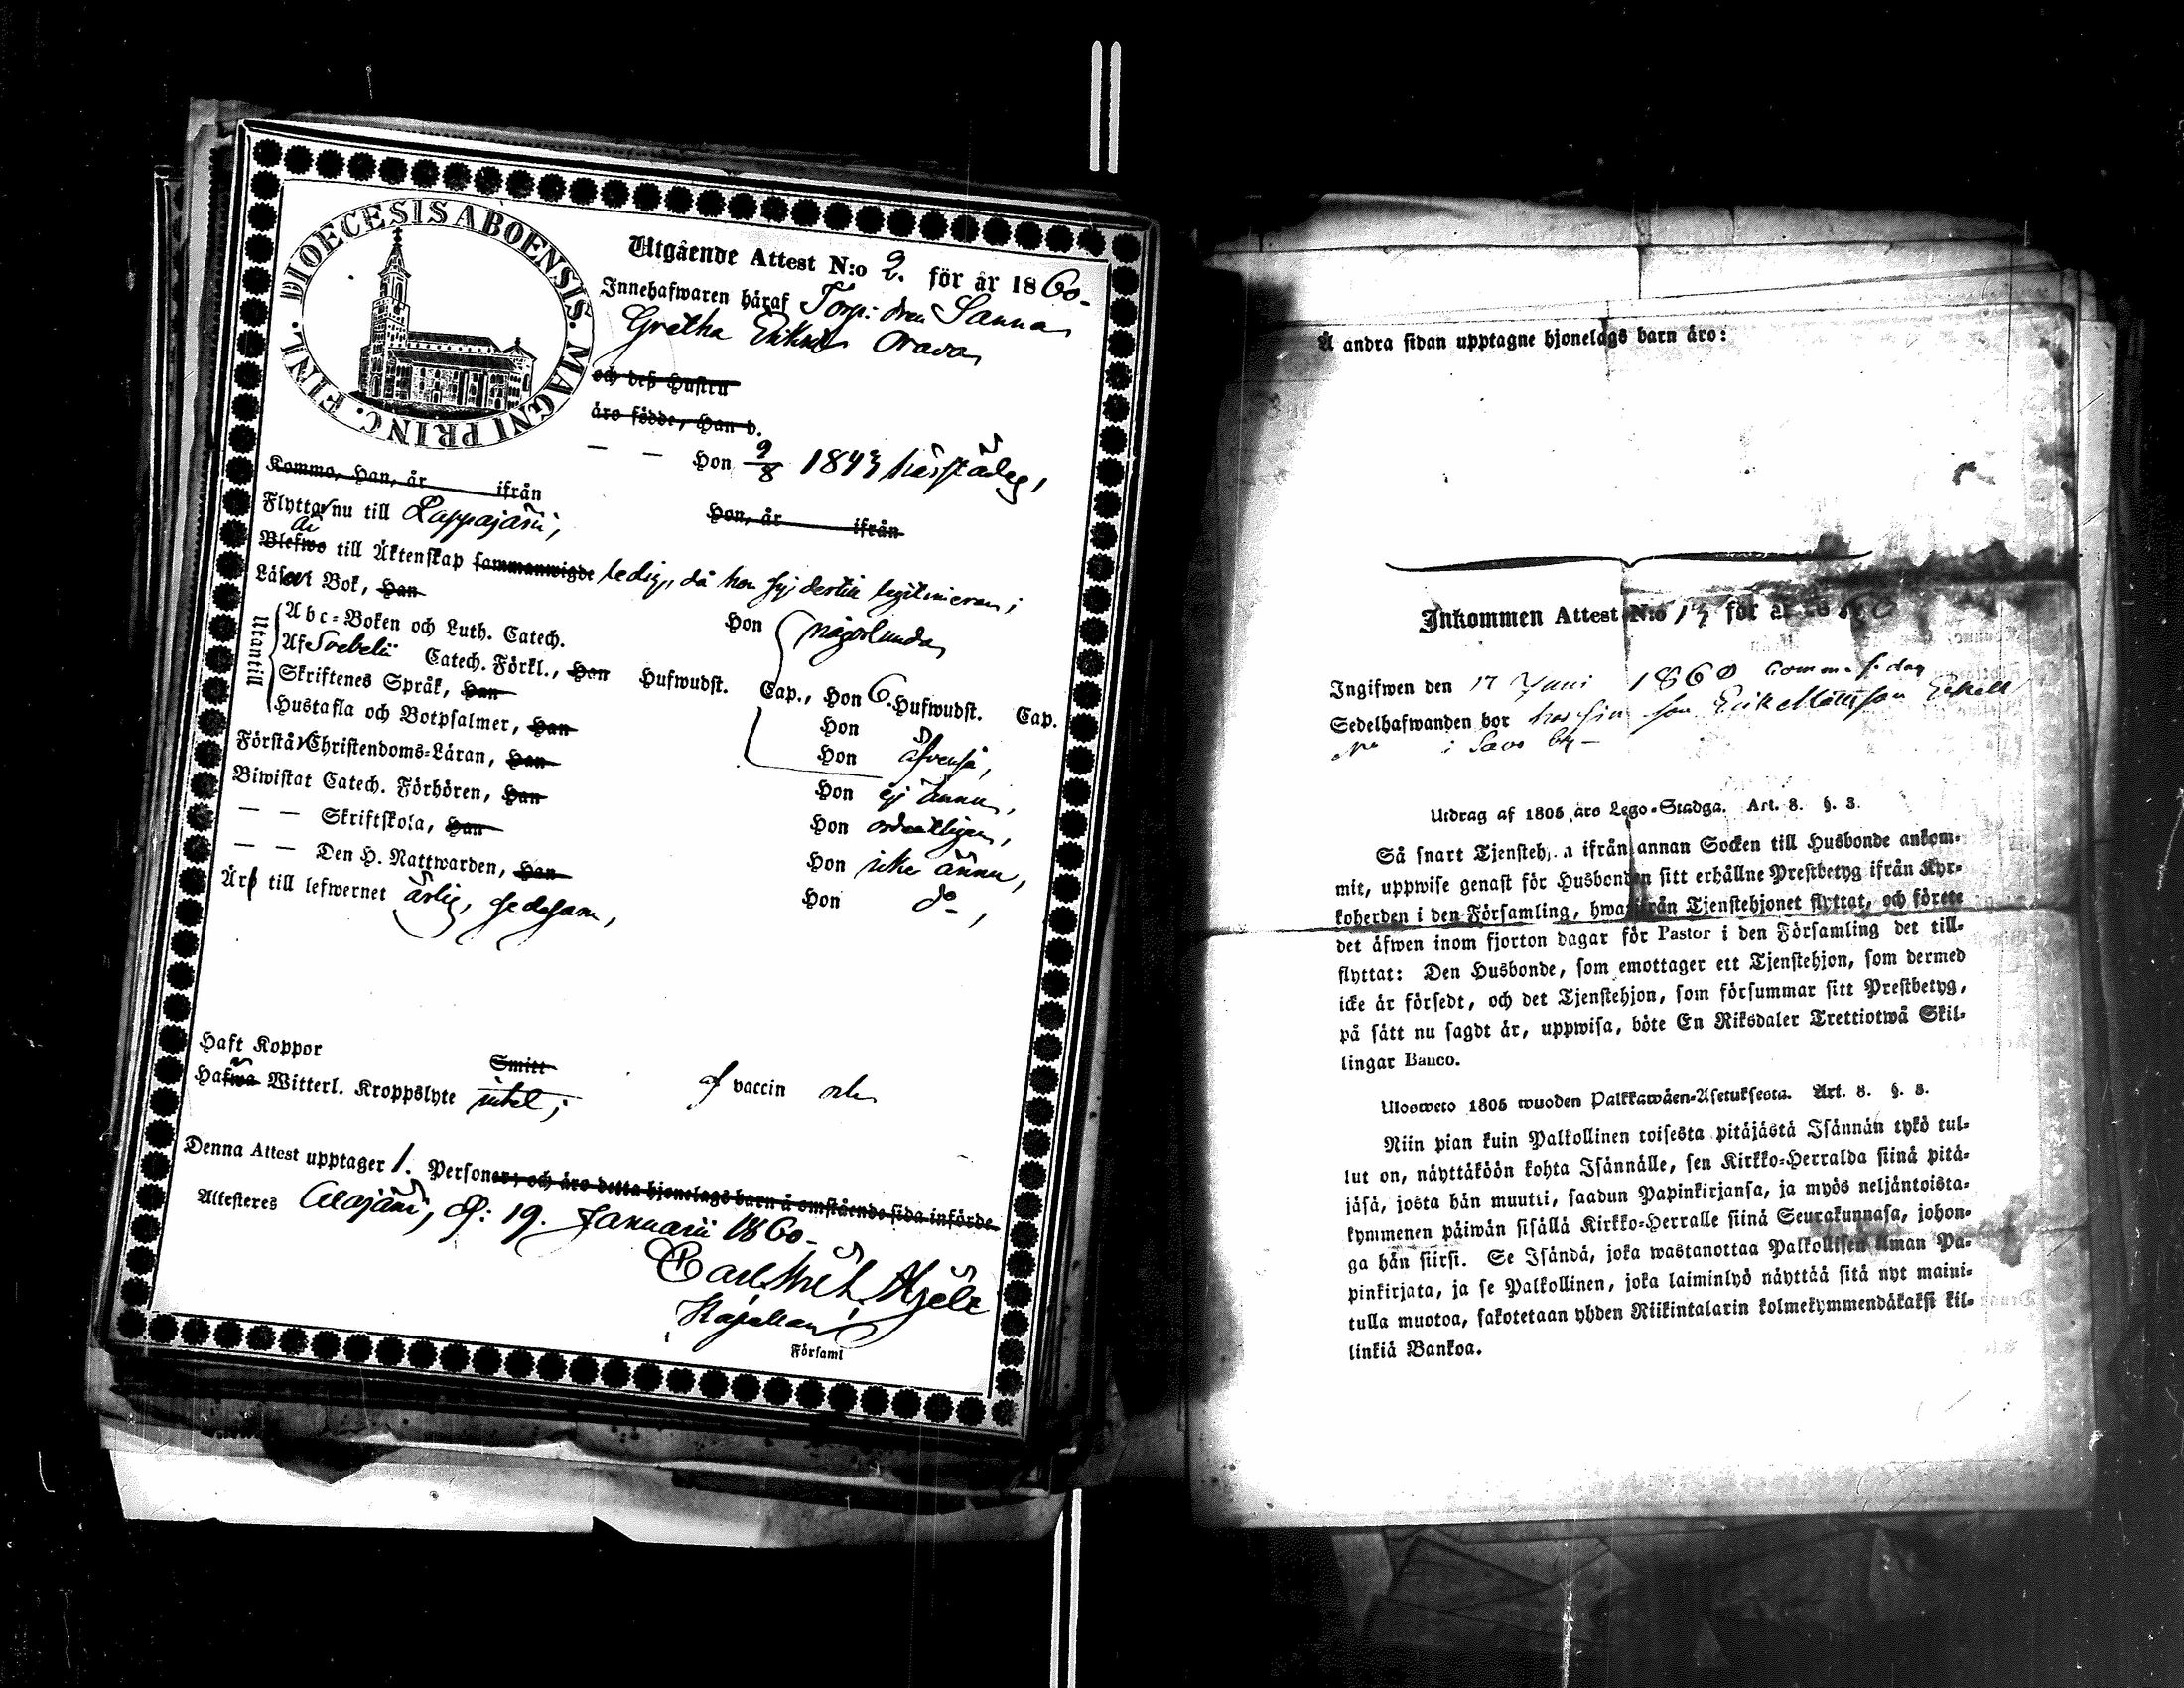 DIOECESIS ABOENSIS. MAGNI PRINC. FINL.
Utgående Attest N:o 2. för år 1860.
Innehafwaren häraf Torp: dren Sanna
Gretha Oravas
och deß Hustru
äro födde, Han d.
— — Hon 9/8 1843 härstädes,
Komma, Han, år ifrån
Hon, år ifrån
Flytta nu till Lappajärvi,
är
Blefwo till Äktenskap sammanwigde ledig, då hon sig legitimeran;
Läser i Bok, Han
Hon någorlunda
Utantill
Abc-Boken och Luth. Catech.
Af Svebelii Catech. Förkl., Han Hufwudst. Cap., Hon 6. Hufwudst. Cap.
Skriftenes Språk, Han Hon
Hustafla och Botpsalmer, Han Hon äfvenså,
Förstår Christendoms-Läran, Han Hon ej ännu,
Biwistat Catech. Förhören, Han Hon ordentligen,
— — Skriftskola, Han Hon icke ännu,
— — Den H. Nattwarden, Han Hon do,
Är till lefwernet ärlig, sedesam,
Haft Koppor Smitt af vaccin
Hafwa Witterl. Kroppslyte intet;
Denna Attest upptager 1. Personer; och äro detta hjonelags barn å omstående sida införde.
Attesteres Alajärvi, d: 19. Januarii 1860.
Carl
Kapellan
Församl
Å andra sidan upptagne hjonelags barn äro:
Inkommen Attest N:o 13 för år 1860
Ingifwen den 17 Juni 1860
Sedelhafwanden bor hos sin Erik Mattsson
i Savo by
Utdrag af 1805 års Lego-Stadga. Art. 8. §. 3.
Så snart Tjensteh. n ifrån annan Socken till Husbonde ankom-
mit, uppwise genast för Husbonden sitt erhållne Prestbetyg ifrån Kyr-
koherden i den Församling, hwarifrån Tjenstehjonet flyttat, och förete
det äfwen inom fjorton dagar för Pastor i den Församling det till-
flyttat: Den Husbonde, som emottager ett Tjenstehjon, som dermed
icke är försedt, och det Tjenstehjon, som försummar sitt Prestbetyg,
på sätt nu sagdt är, uppwisa, böte En Riksdaler Trettiotwå Skil-
lingar Banco.
Ulosweto 1805 wuoden Palkkawäen-Asetuksesta. Art. 8. §. 3.
Niin pian kuin Palkollinen toisesta pitäjästä Isännän tykö tul-
lut on, näyttäköön kohta Isännälle, sen Kirkko-Herralda siinä pitä-
jäsä, josta hän muutti, saadun Papinkirjansa, ja myös neljäntoista-
kymmenen päiwän sisällä Kirkko-Herralle siinä Seurakunnasa, johon-
ga hän siirsi. Se Isändä, joka wastanottaa Palkollisen ilman Pa-
pinkirjata, ja se Palkollinen, joka laiminlyö näyttää sitä nyt maini-
tulla muotoa, sakotetaan yhden Riikintalarin kolmekymmendäkaksi kil-
linkiä Bankoa.